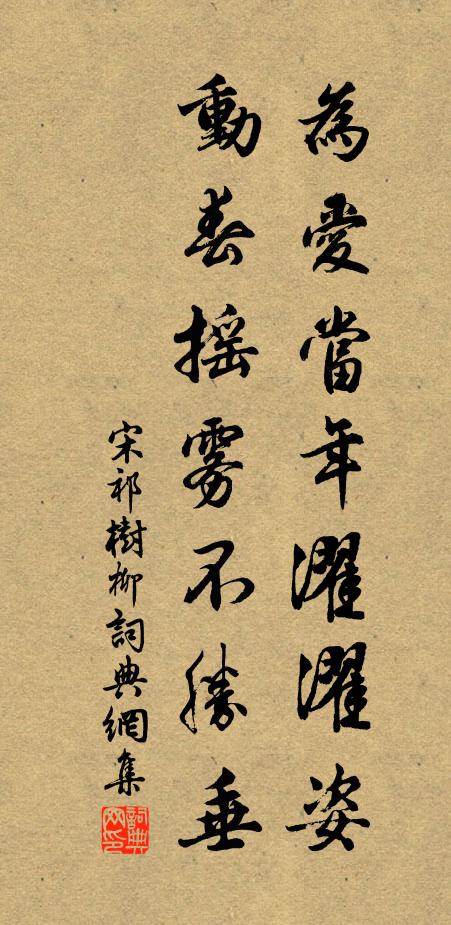 為愛當年濯濯姿
動春搖雾不勝垂
宋祁樹柳詞典網集
詞典网印